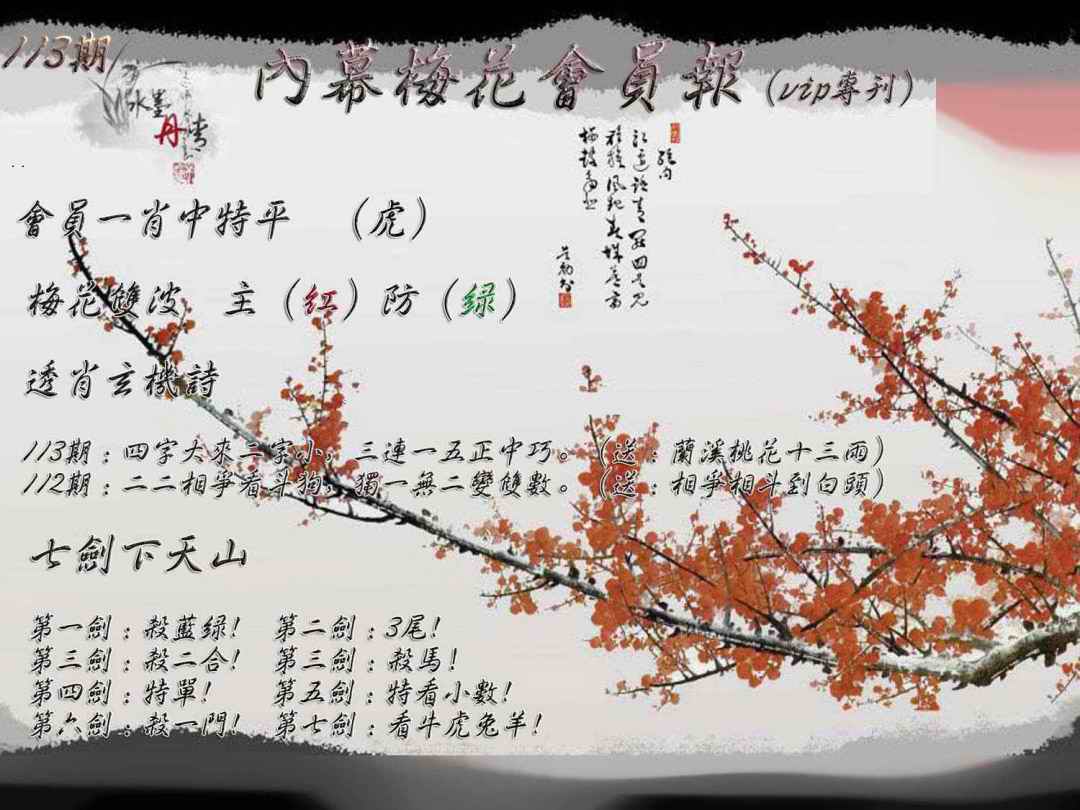 113期
內幕梅花會員報（vip專刊）
水墨
丹青
會員一肖中特平 （虎）
梅花雙波 主（紅）防（绿）
透肖玄機詩
113期：四字大來二字小，三連一五正中巧。（送：蘭溪桃花十三雨）
112期：二二相爭看斗狗，獨一無二變雙數。（送：相爭相斗到白頭）
七劍下天山
第一劍：殺藍绿！ 第二劍：3尾！
第三劍：殺二合！ 第三劍：殺馬！
第四劍：特單！ 第五劍：特看小數！
第六劍：殺一門！ 第七劍：看牛虎兔羊！